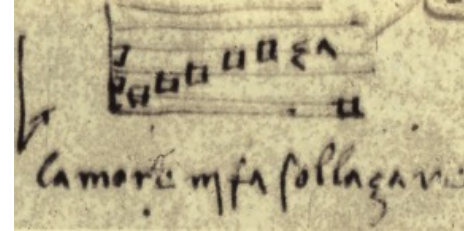 za
lamore mj fa sollazare